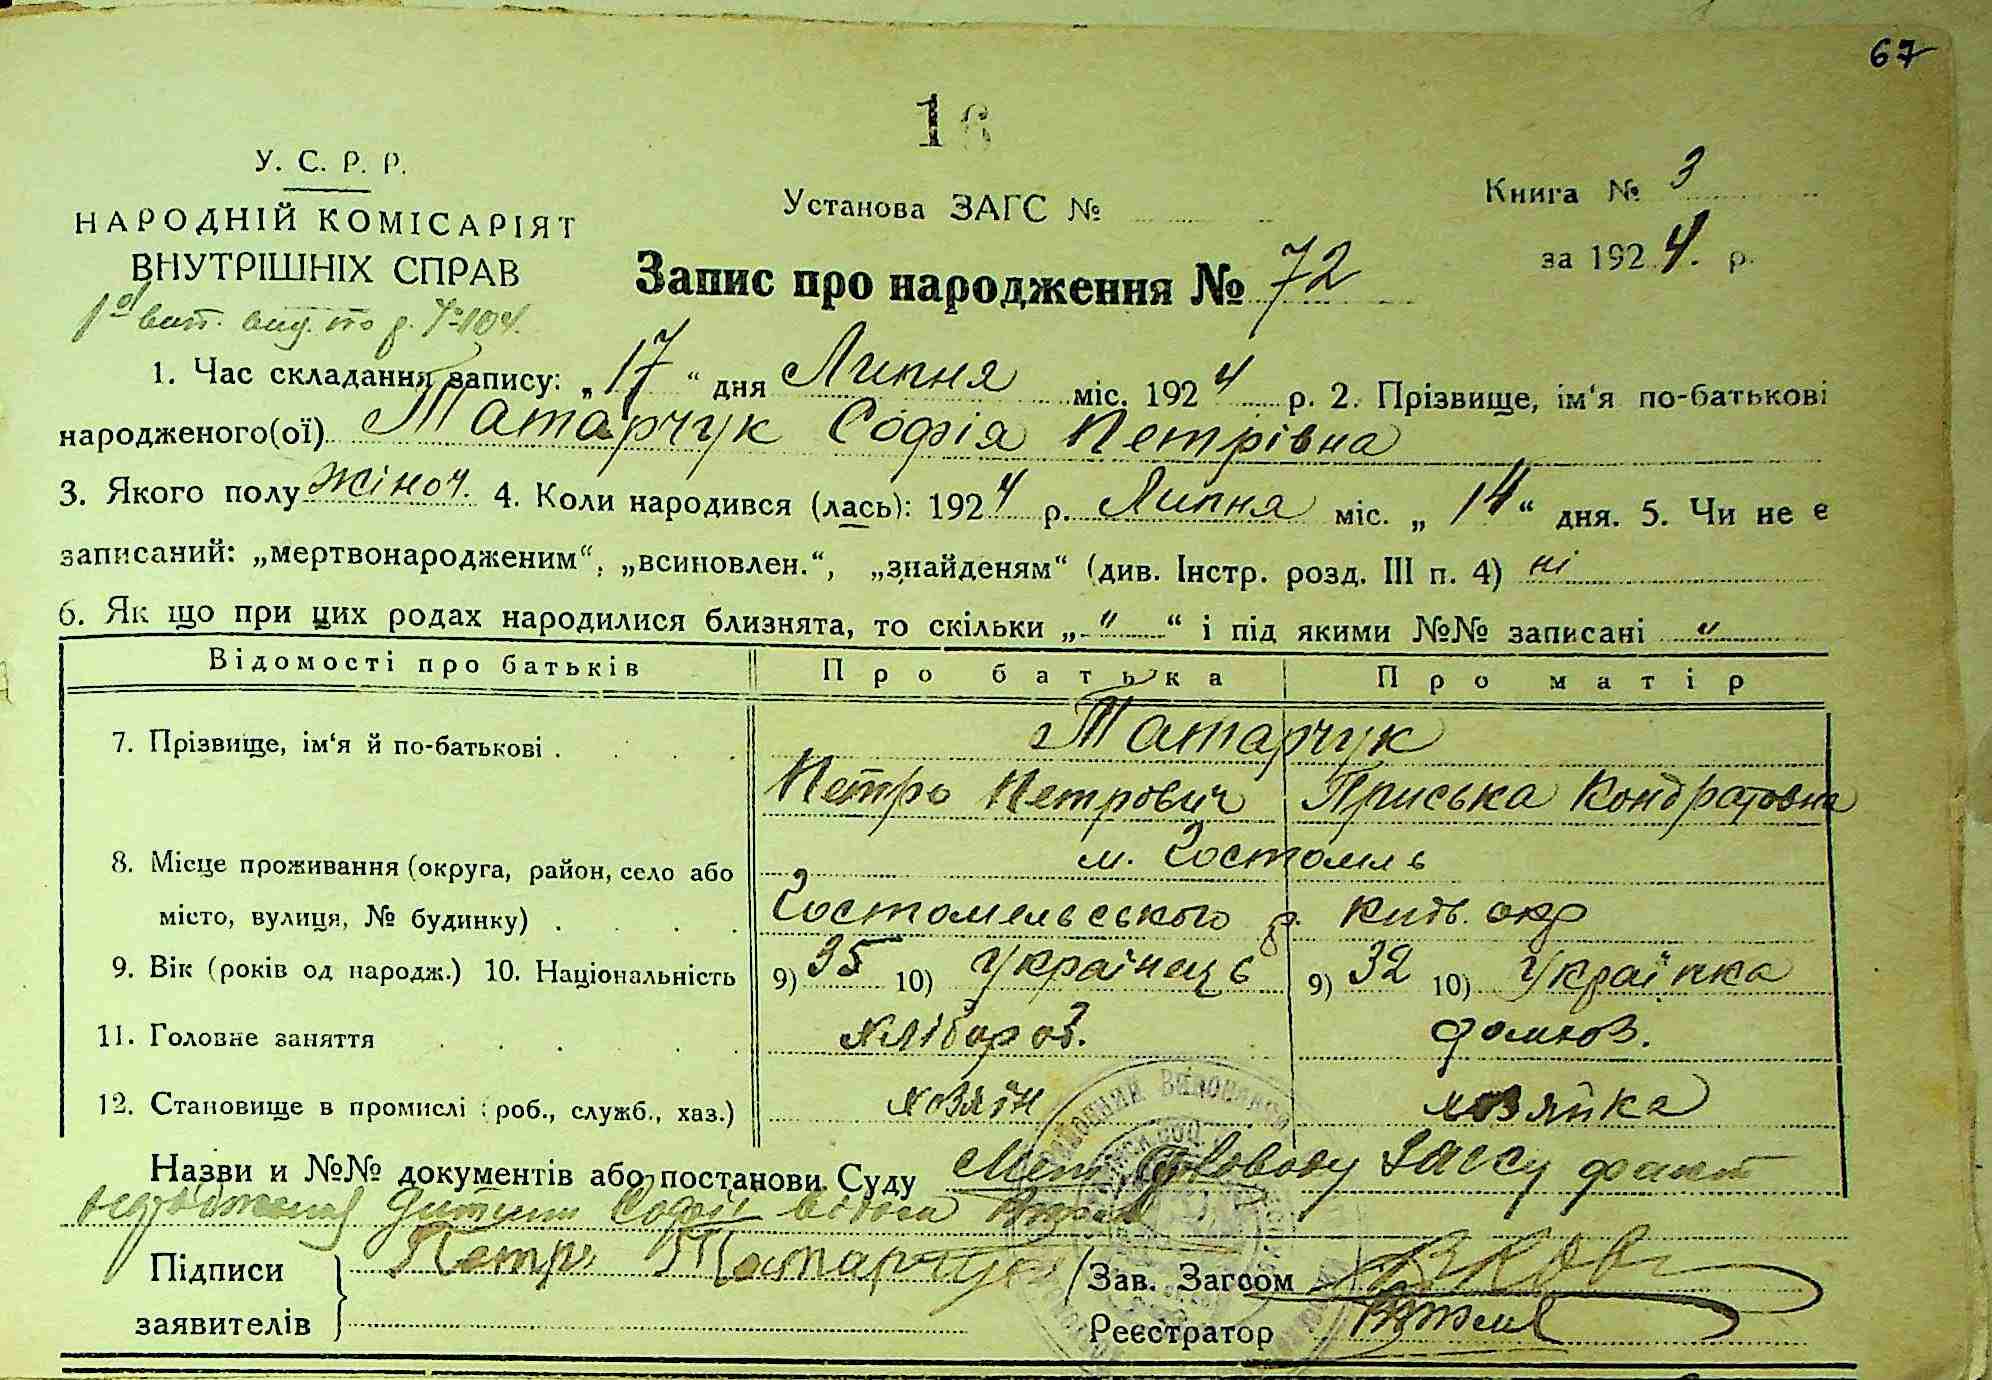 67
16
У. С. Р. Р.
НАРОДНІЙ КОМІСАРІЯТ
ВНУТРІШНІХ СПРАВ
Установа ЗАГС №
Книга № 3
за 1924. р.
Запис про народження № 72
1. Час складання запису: „17“ дня Липня міс. 1924 р. 2. Прізвище, ім‘я по-батькові
народженого(ої) Татарчук Софія Петрівна
3. Якого полу жіноч. 4. Коли народився (лась): 1924 р. Липня міс. „14“ дня. 5. Чи не є
записаний: „мертвонародженим“, „всиновлен.“, „знайденям“ (див. Інстр. розд. III п. 4) ні
6. Як що при цих родах народилися близнята, то скільки „ " “ і під якими №№ записані "
Відомості про батьків Про батька Про матір
7. Прізвище, ім‘я й по-батькові . Татарчук
Петро Петрович Приська Кондратовна
8. Місце проживання (округа, район, село або м. Гостомель
місто, вулиця, № будинку) . Гостомельського р. Київ. окр
9. Вік (років од народж.) 10. Національність 9) 35 10) Українець 9) 32 10) Українка
11. Головне заняття хлібороб. домгов.
12. Становище в промислі (роб., служб., хаз.) хозяїн хозяйка
Назви и №№ документів або постанови Суду Загсу факт
народження дитини Софії
Підписи Петро Татарчук Зав. Загсом
заявителів Реєстратор